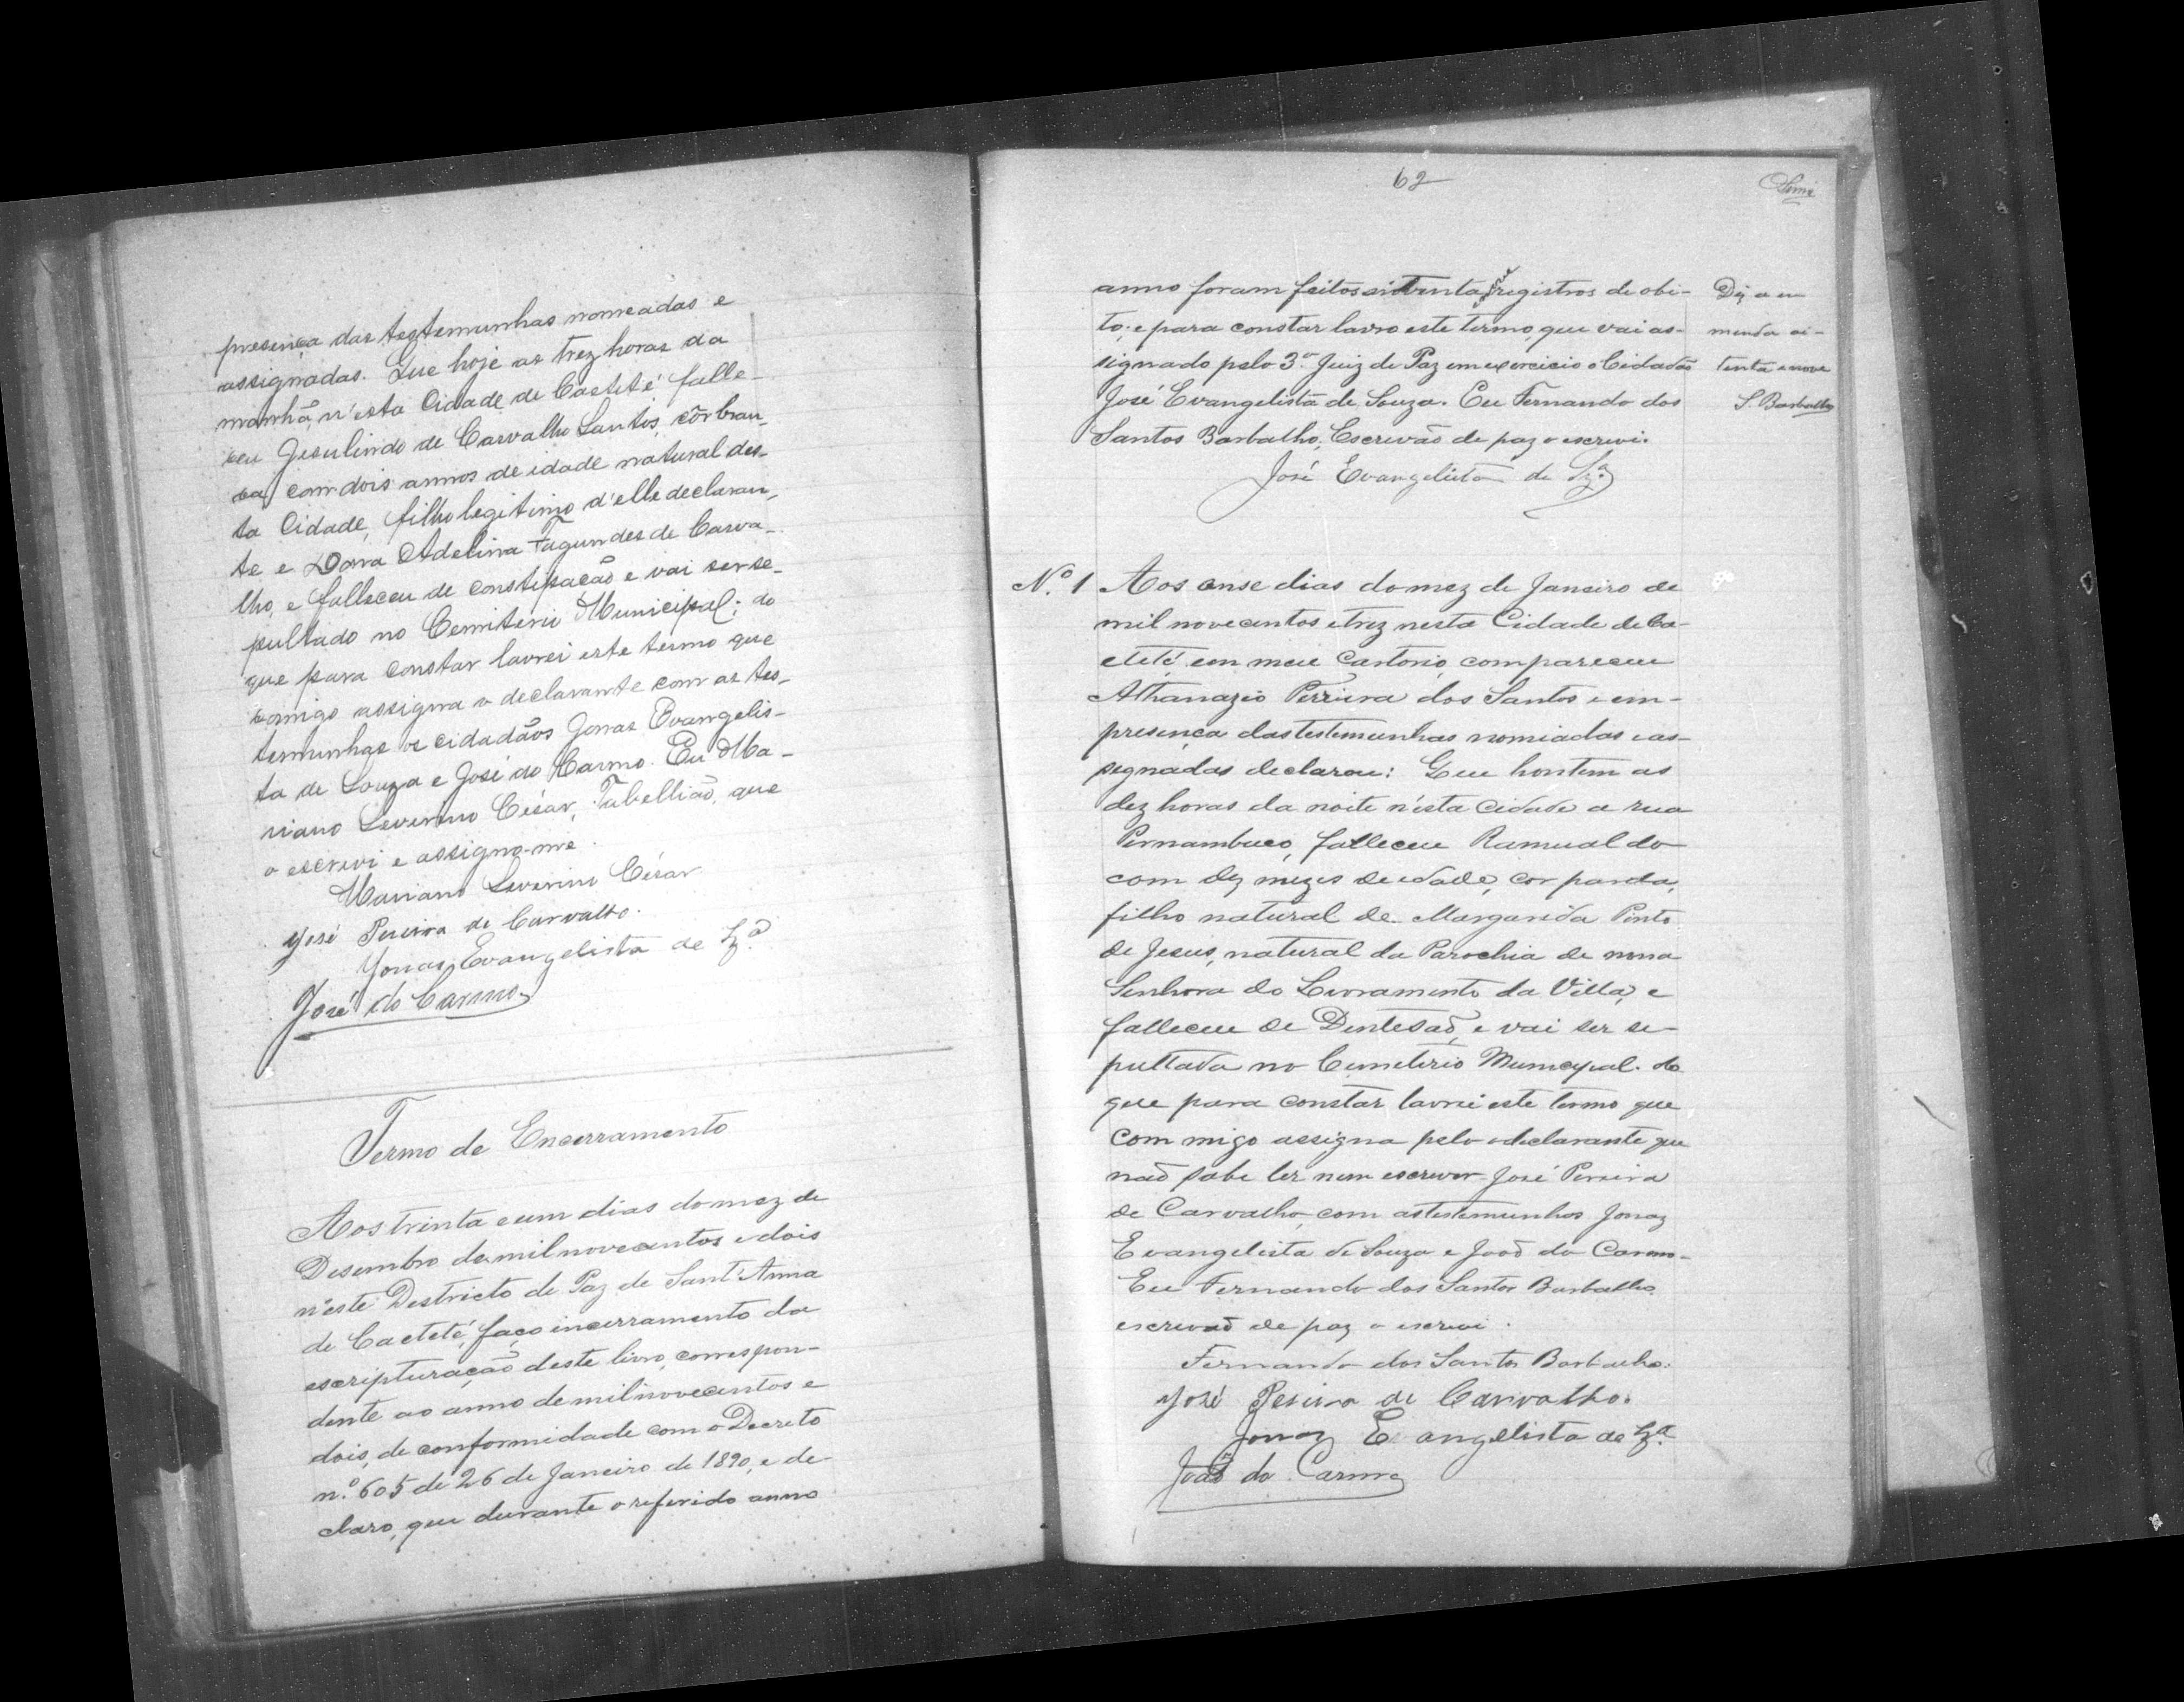 presença das testemunhas nomeadas e
assignadas. Que hoje as trez horas da
manhã n'esta Cidade de Caeteté falle-
ceu Jesulindo de Carvalho Santos, côr bran-
ca, com dois annos de idade natural des-
ta Cidade, filho legitimo d'elle declaran-
te e Dona Adelina Fagundes de Carva-
lho, e falleceu de constipação e vai ser se-
pultado no Cemiterio Municipal; do
que para constar lavrei este termo que
comigo assigna o declarante com as tes-
temunhas os cidadãos Jonas Evangelis-
ta de Souza e José do Carmo. Eu Ma-
riano Severino César, Tabellião, que
o escrevi e assigno-me.
Mariano Severino César
José Pereira de Carvalho.
Jonas Evangelista de Sz.ª
José do Carmo
Termo de Encerramento
Aos trinta e um dias do mez de
Desembro de mil novecentos e dois
n'este Destricto de Paz de Sant'Anna
de Caeteté, faço incerramento da
escripturação deste livro, correspon-
dente ao anno de mil novecentos e
dois, de conformidade com o Decreto
n.º 605 de 26 de Janeiro de 1890, e de-
claro, que durante o referido anno
62
anno foram feitos oitenta e nove registros de obi-
to; e para constar lavro este termo, que vai as-
signado pelo 3.º Juiz de Paz em exercicio o Cidadão
José Evangelista de Souza. Eu Fernando dos
Santos Barbalho, Escrivão de paz o escrevi.
José Evangelista de Sz.ª
Diz a e-
menda oi-
tenta e nove
S. Barbalho
N.º 1 Aos onse dias do mez de Janeiro de
mil novecentos e trez nesta Cidade de Ca-
eteté em meu Cartorio, compareceu
Athanazio Perreira dos Santos e em-
presença das testemunhas nomiadas e as-
segnadas declarou: Que hontem as
dez horas da noite n'esta cidade a rua
Pernambuco, falleceu Ramualdo
com dez mezes de edade, cor parda,
filho natural de Margarida Pinto
de Jesus, natural da Parochia de nossa
Senhora do Livramento da Villa, e
falleceu de Dentesaõ, e vai ser se-
pultada no Cemeterio Municipal. do
que para constar lavrei este termo que
com migo assigna pelo o declarante que
naõ sabe ler nem escrever José Pereira
de Carvalho, com as testemunhas Jonas
Evangelista de Souza e Joaõ do Carmo-
Eu Fernando dos Santos Barbalho
escrivaõ de paz o escrevi.
Fernando dos Santos Barbalho.
José Pereira de Carvalho.
Jonas Evangelista de Sz.ª
Joaõ do Carmo